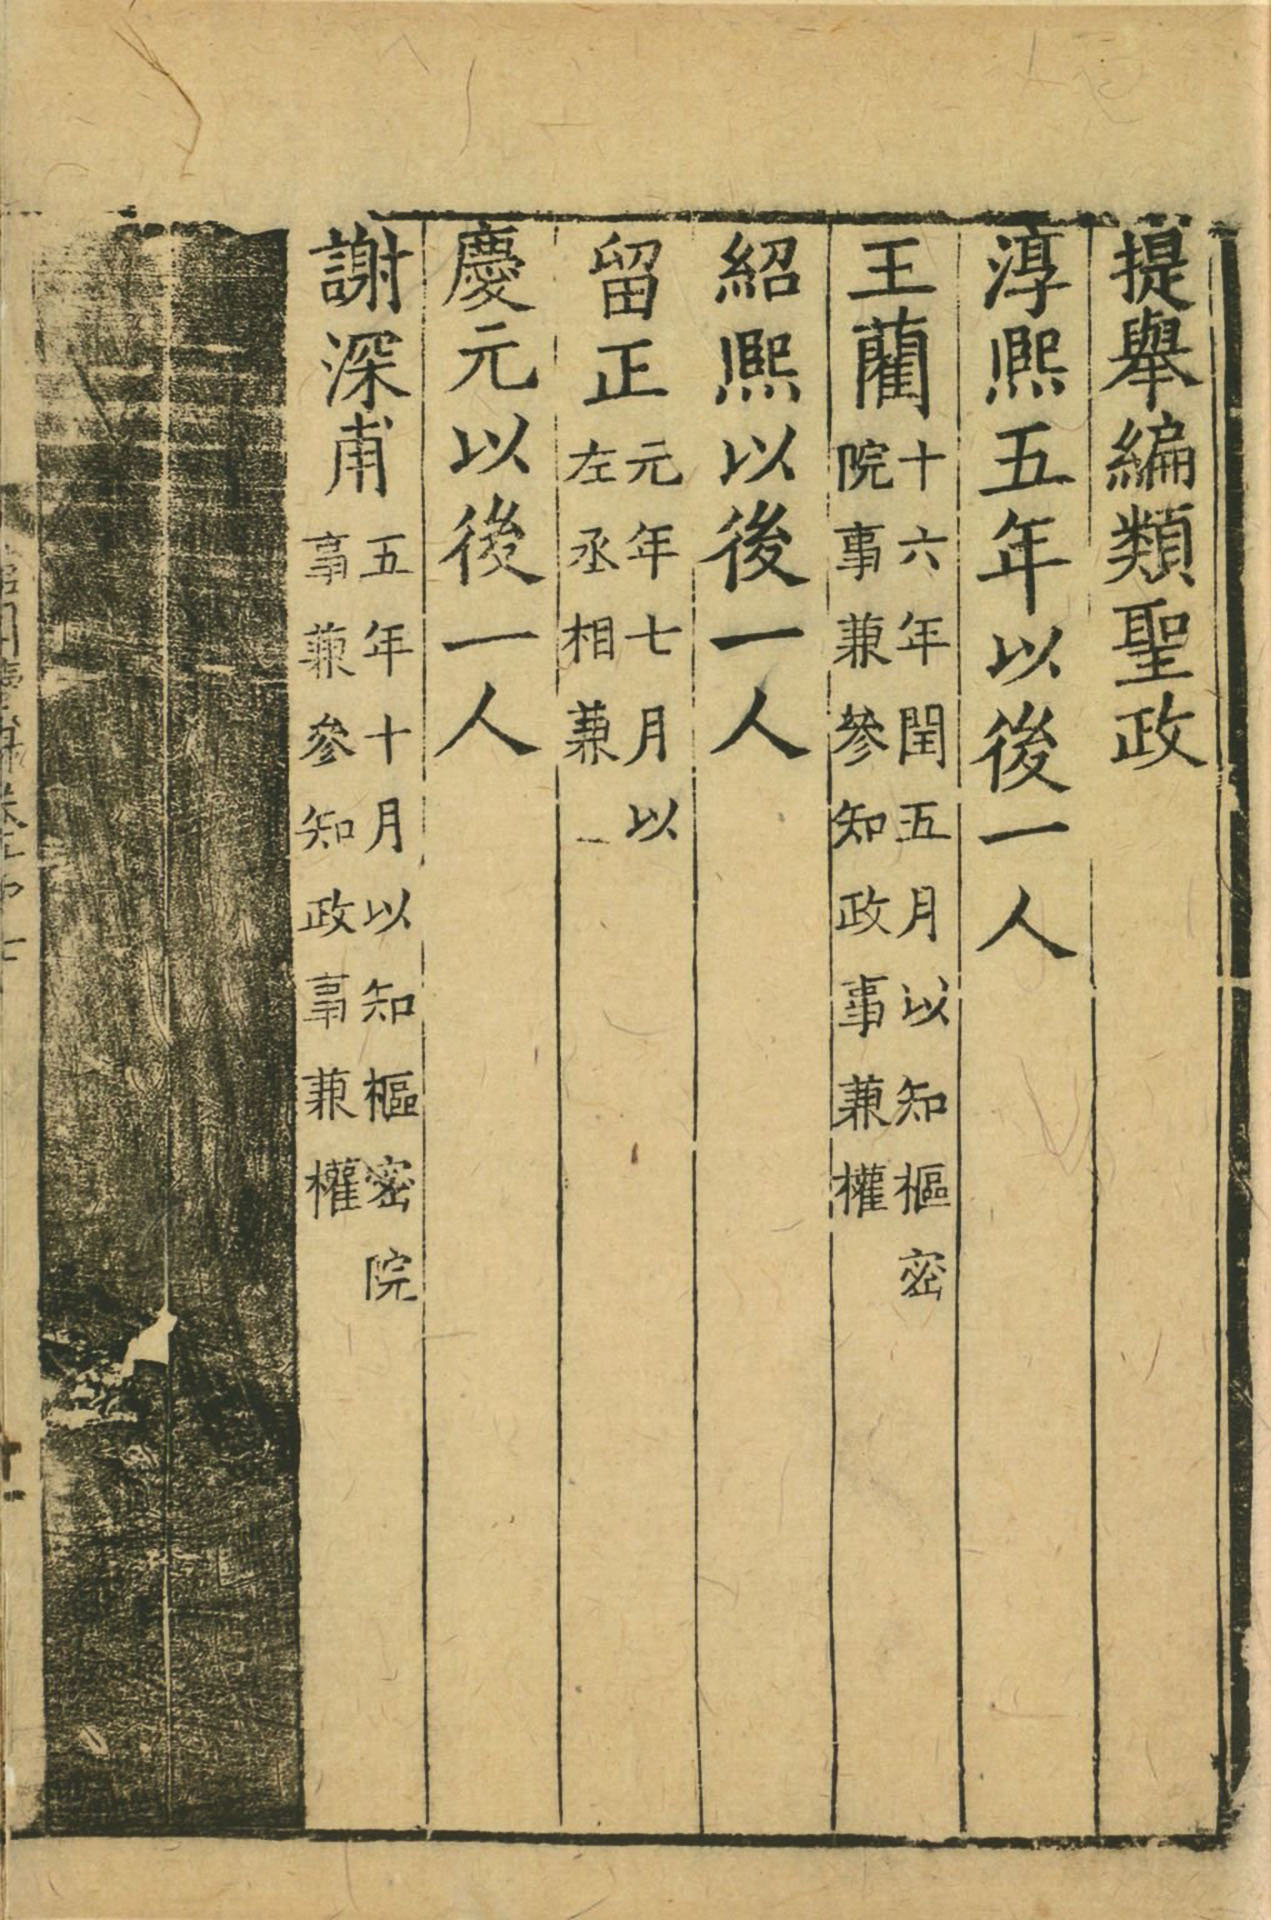 提舉編類聖政
淳熈五年以後一人
王藺
十六年閏五月以知樞密
院事兼參知政事兼權
紹熈以後一人
留正
元年七月以
左丞相兼
慶元以後一人
謝深甫
五年十月以知樞密院
事兼參知政事兼權